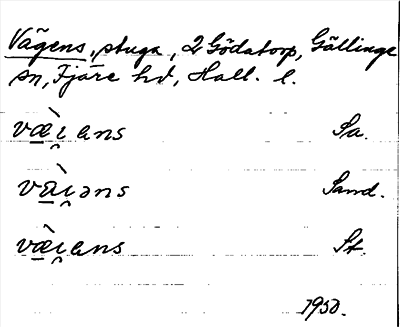 Vägens, stuga, 2 Gödatorp, Gällinge
sn, Fjäre hd, Hall. l.
væ̀i̯ens Sa.
vài̯əns Sand.
væ̀i̯ens St.
1950.